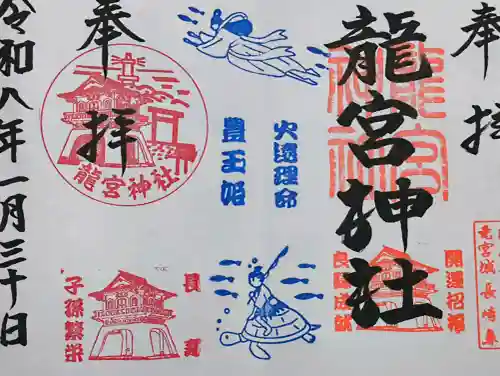 奉拝
龍宮神社
龍宮神社
奉拝
龍宮神社
火遠理命
豊玉姫
開運招福
良縁成就
貝寿
子孫繁栄
令和八年一月三十日